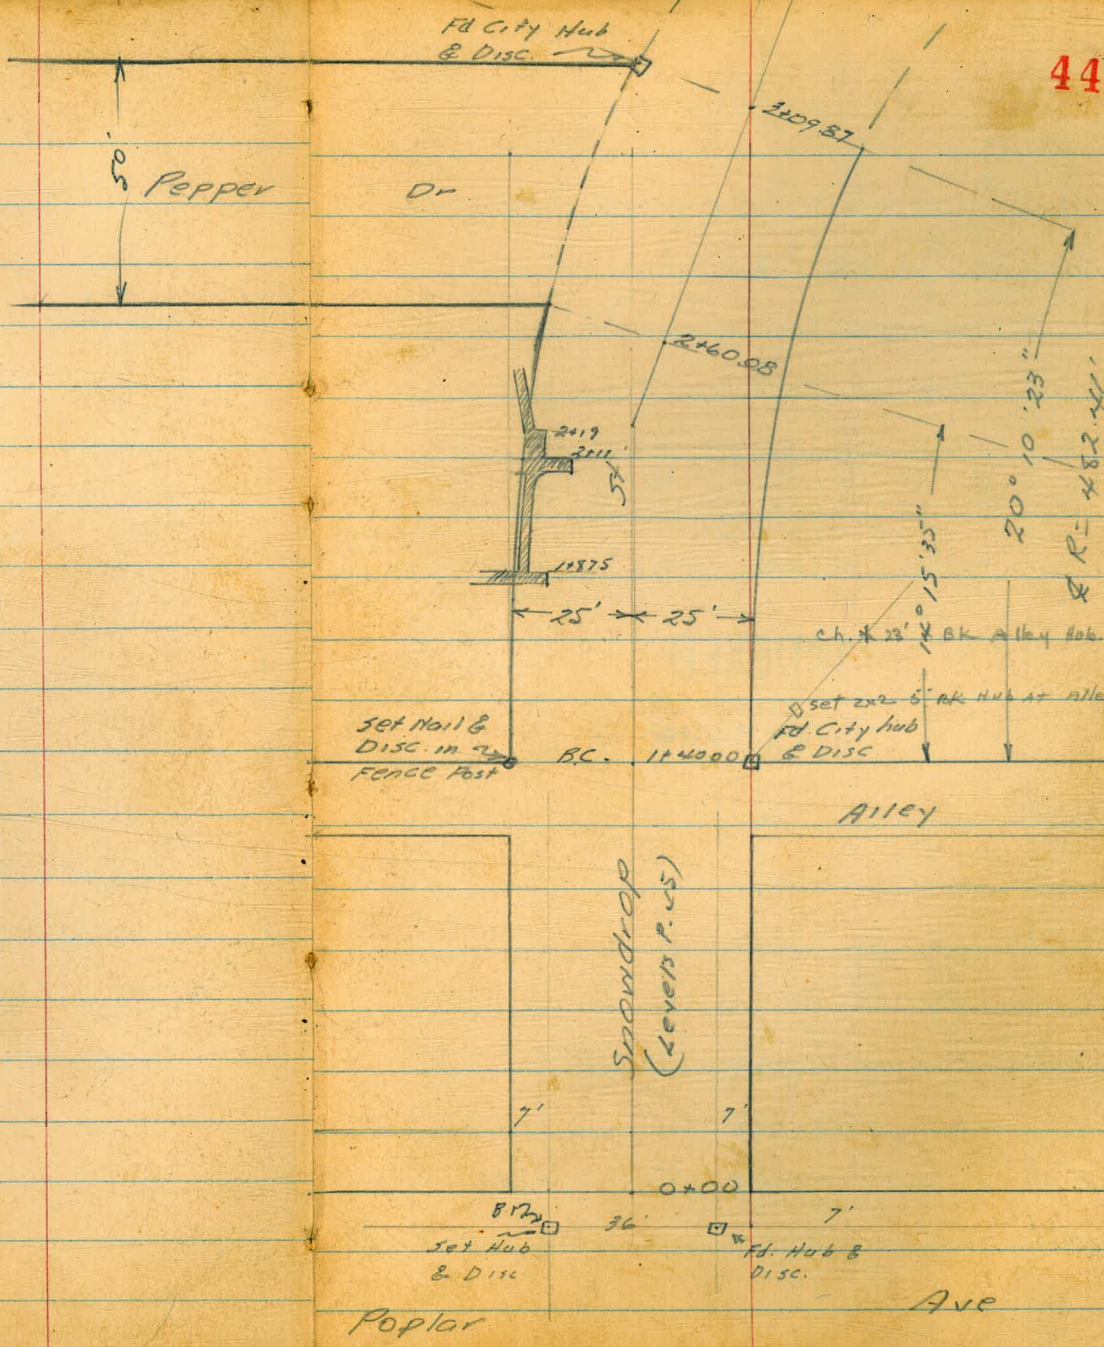 44
Fd City Hub
& Disc.
50'
Pepper Dr
2+60.08
2+19
2+11
5+'
1+875
25' 25'
14° 15' 35"
20° 10' 23"
R = 482.41'
Ch. 23' BK Alley Hub.
set 2x2 5' BK Hub At Alle
Fd. City hub
& Disc
Set Nail &
Disc. in
Fence Post
B.C. 1+4000
Alley
Snowdrop
(Levels P. 45)
7' 7'
0+00
BM
36'
7'
Set Hub
& Disc
Fd. Hub &
Disc.
Poplar Ave